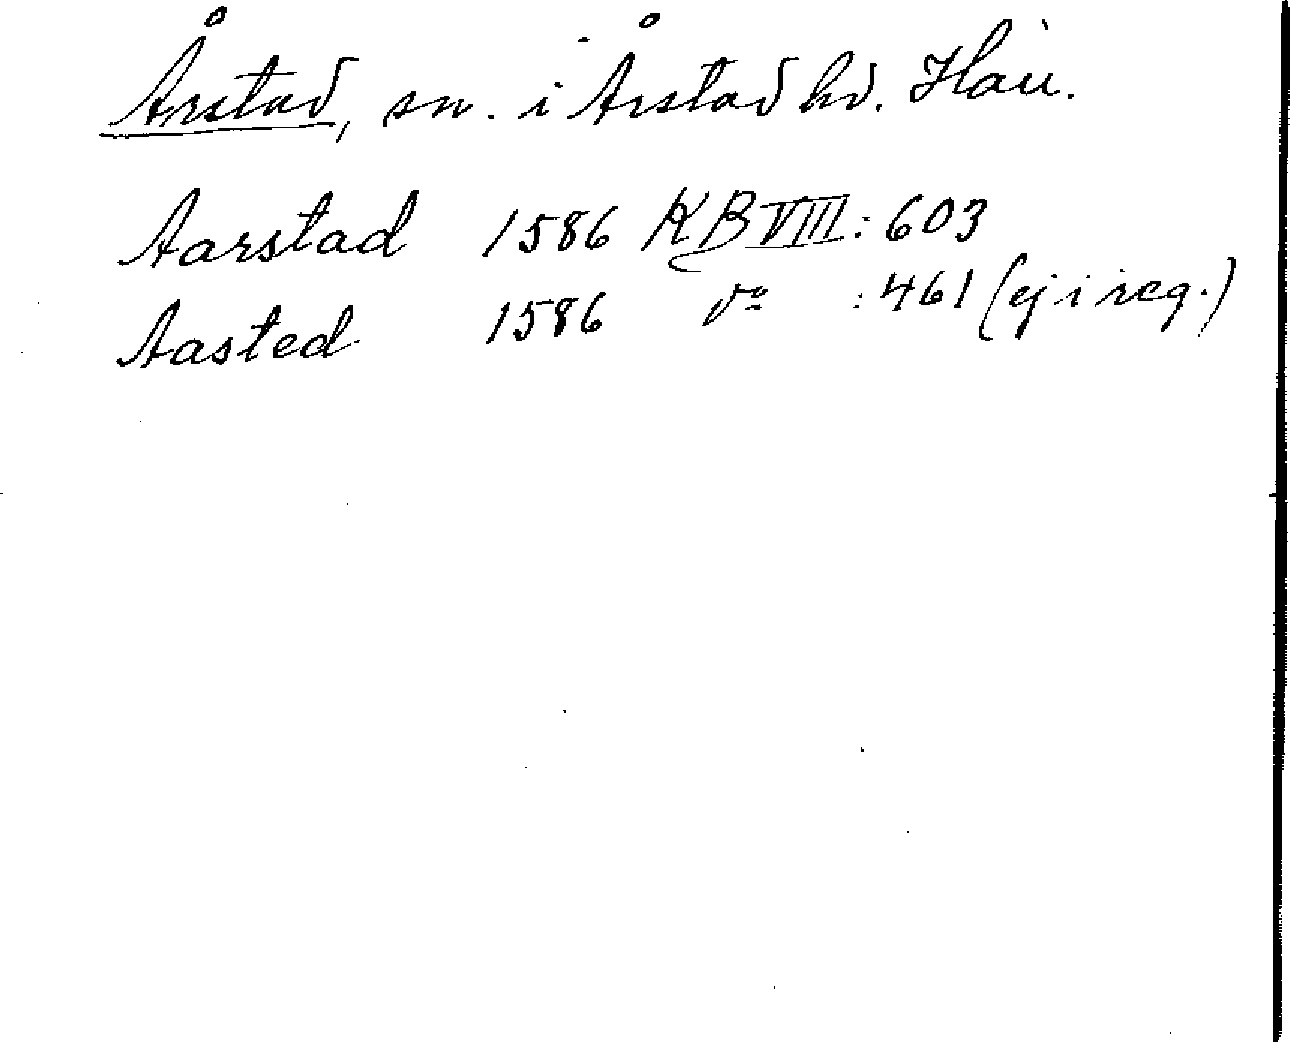 Årstad, sn. i Årstad hd. Hall.
Aarstad 1586 KB VIII: 603
Aasted 1586 do : 461 (ej i reg.)